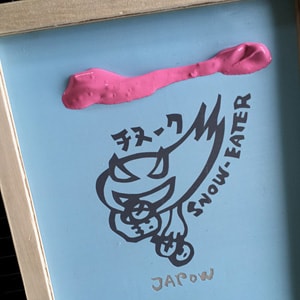 チヌーク
SNOW-EATER
JAPOW